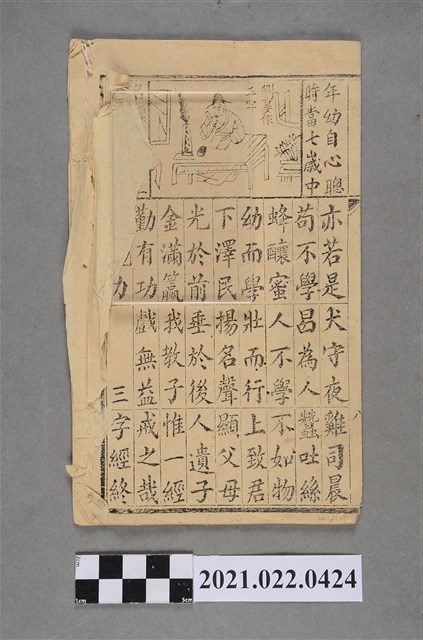 年幼自心聰
時當七歲中
亦若是犬守夜雞司晨
苟不學曷為人蠶吐絲
蜂釀蜜人不學不如物
幼而學壯而行上致君
下澤民揚名聲顯父母
光於前垂於後人遺子
金滿籯我教子惟一經
勤有功戲無益戒之哉
力 三字經終
2cm
1cm
5cm
2021.022.0424